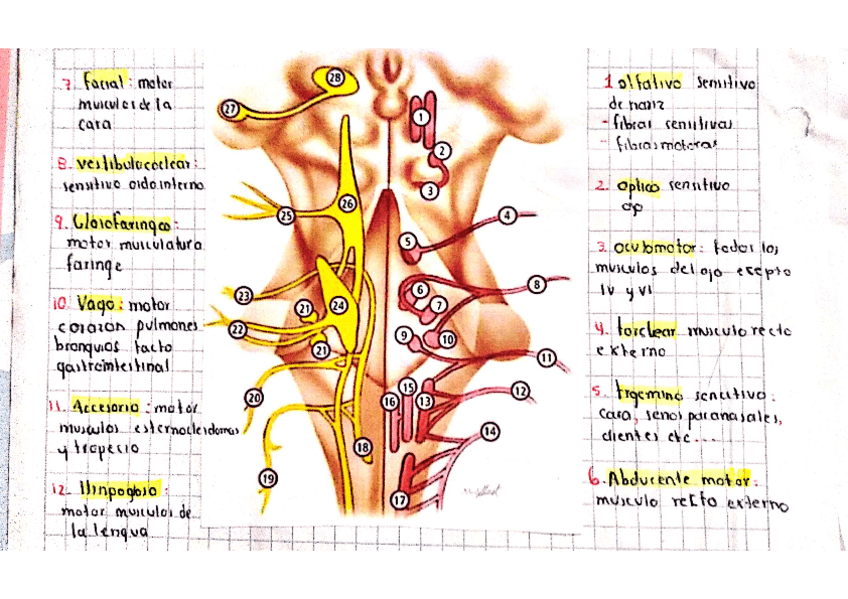 7. Facial: motor
musculos de la
cara
8. vestibulococlear:
sensitivo oido interno
9. Glosofaringeo:
motor musculatura
faringe
10. Vago: motor
corazon pulmones
bronquios tacto
gastrointestinal
11. Accesorio: motor
musculos esternocleidomas
y trapecio
12.
motor musculos de
la lengua
28
27
1
2
3
26
25
4
5
23
24
21
22
21
6
7
8
9
10
11
20
16
15
13
12
18
14
19
17
1 olfativo sensitivo
de nariz
- fibras sensitivas
- fibras motoras
2. optico sensitivo
3. oculomotor: todos los
musculos del ojo exepto
IV y VI
4. torclear musculo recto
externo
5. trigemino sencitivo:
cara, senos paranasales,
dientes etc...
6. Abducente motor:
musculo recto externo